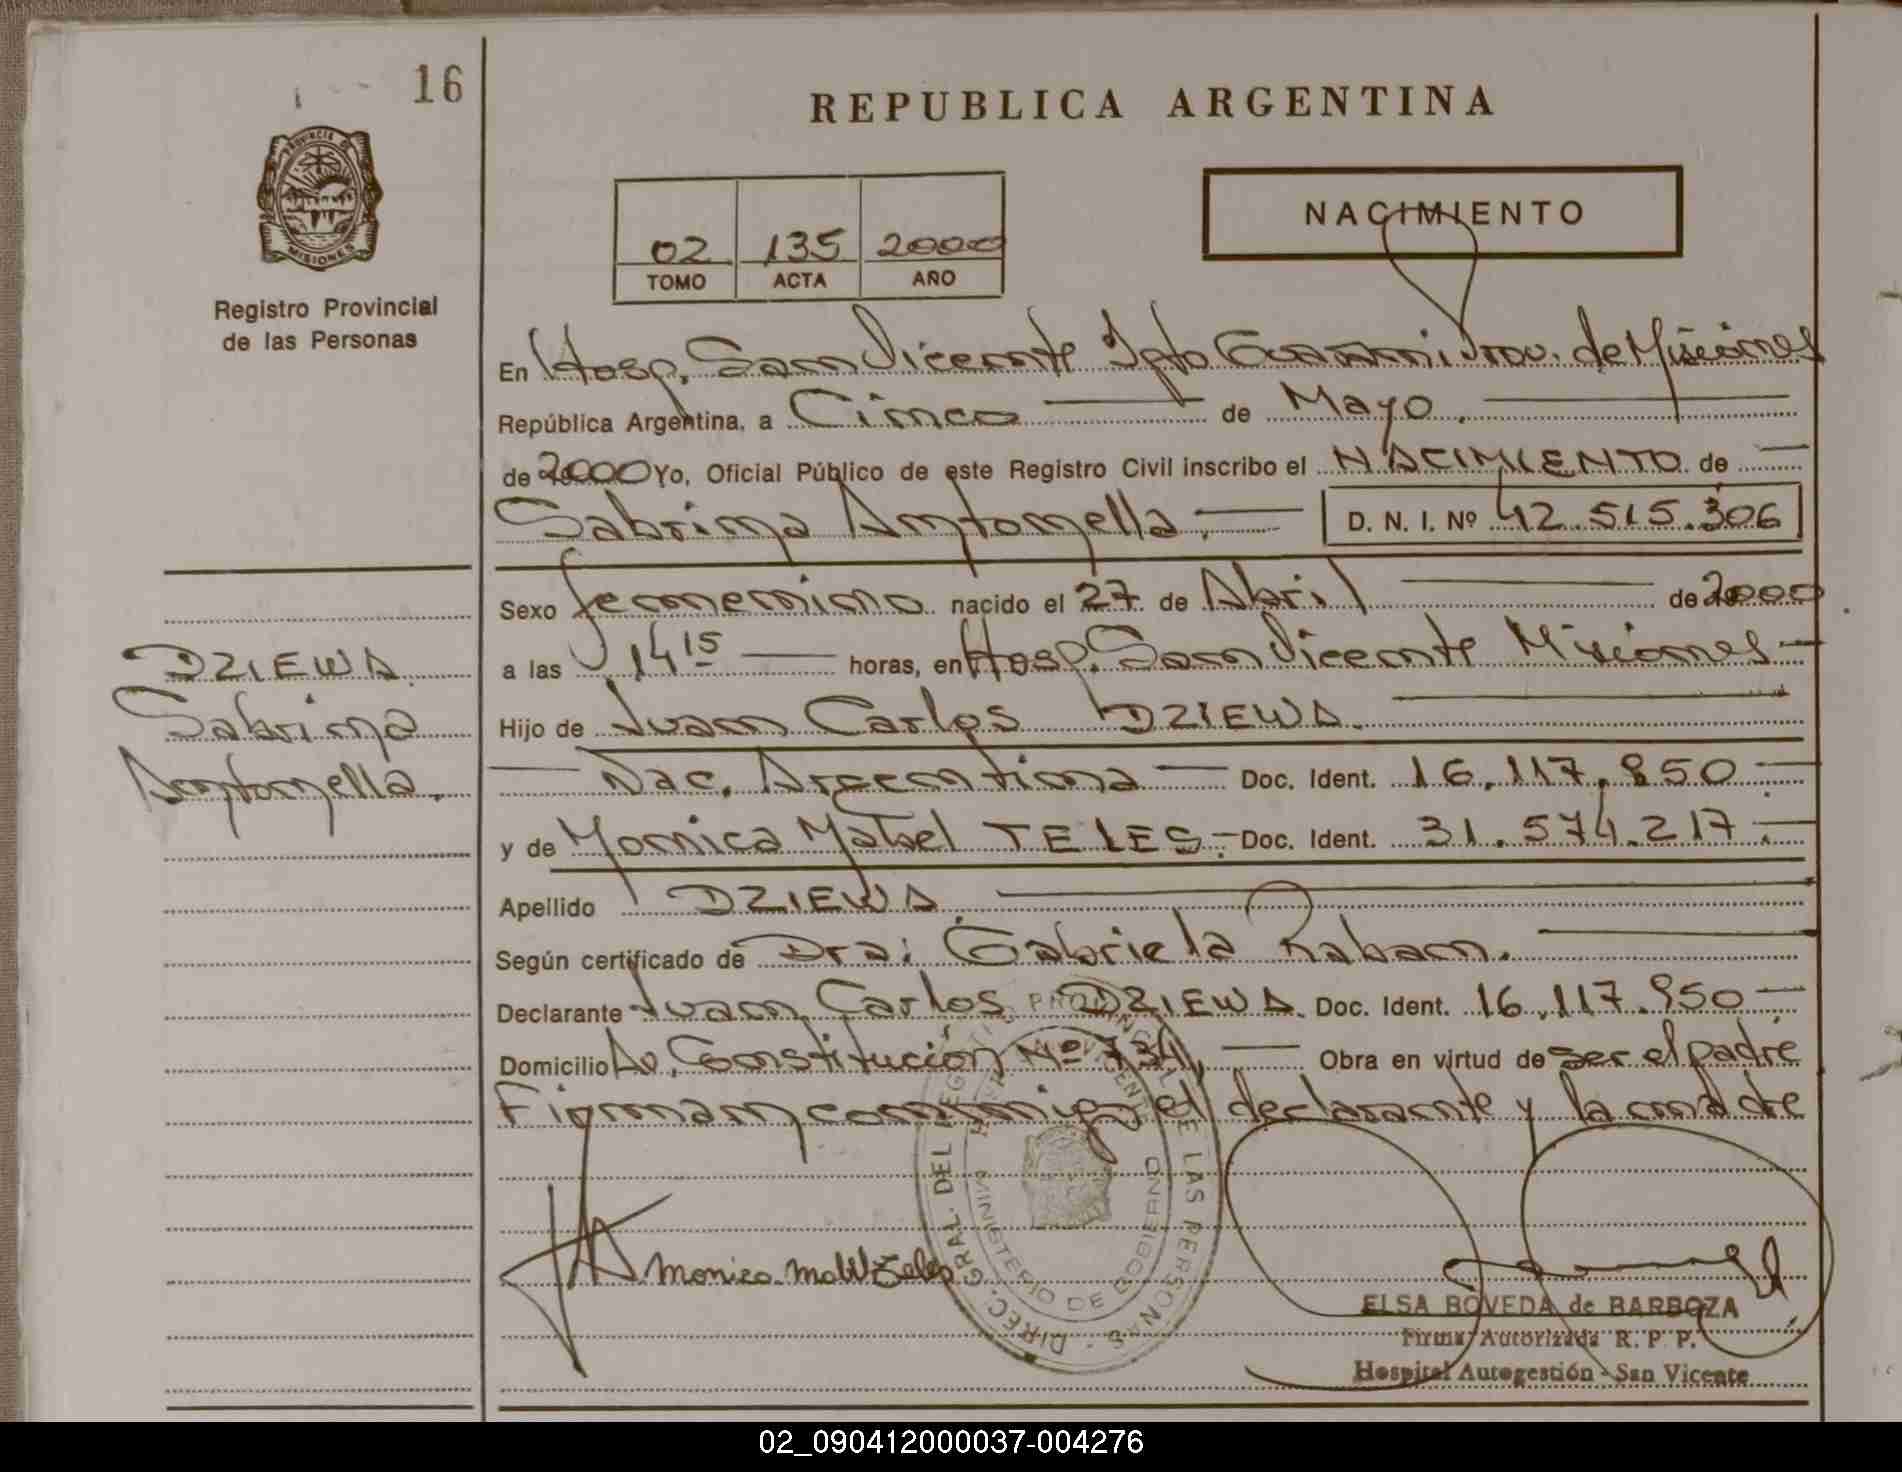 16
REPUBLICA ARGENTINA
PROVINCIA DE MISIONES
Registro Provincial
de las Personas
02 135 2000
TOMO ACTA AÑO
NACIMIENTO
En Hosp. San Vicente Dpto Guarani Prov. de Misiones
República Argentina, a Cinco de Mayo.
de 2000 Yo, Oficial Público de este Registro Civil inscribo el NACIMIENTO de
Sabrina Antonella. D. N. I. Nº 42.515.306
Sexo femenino nacido el 27 de Abril de 2000
a las 14 15 horas, en Hosp. San Vicente Misiones
Hijo de Juan Carlos DZIEWA.
Nac. Argentina Doc. Ident. 16.117.850
y de Monica Mabel TELES - Doc. Ident. 31.574.217.
Apellido DZIEWA.
Según certificado de Dra: Gabriela Raban.
Declarante Juan Carlos DZIEWA. Doc. Ident. 16.117.850
Domicilio Av. Constitución Nº 734, Obra en virtud de ser el padre
Firman conmigo el declarante y la madre
DZIEWA
Sabrina
Antonella.
DIREC. GRAL. DEL REGISTRO PROVINCIAL DE LAS PERSONAS
MINISTERIO DE GOBIERNO
Monica Mabel Teles
ELSA BOVEDA de BARBOZA
Firma Autorizada R. P. P.
Hospital Autogestión - San Vicente
02_090412000037-004276